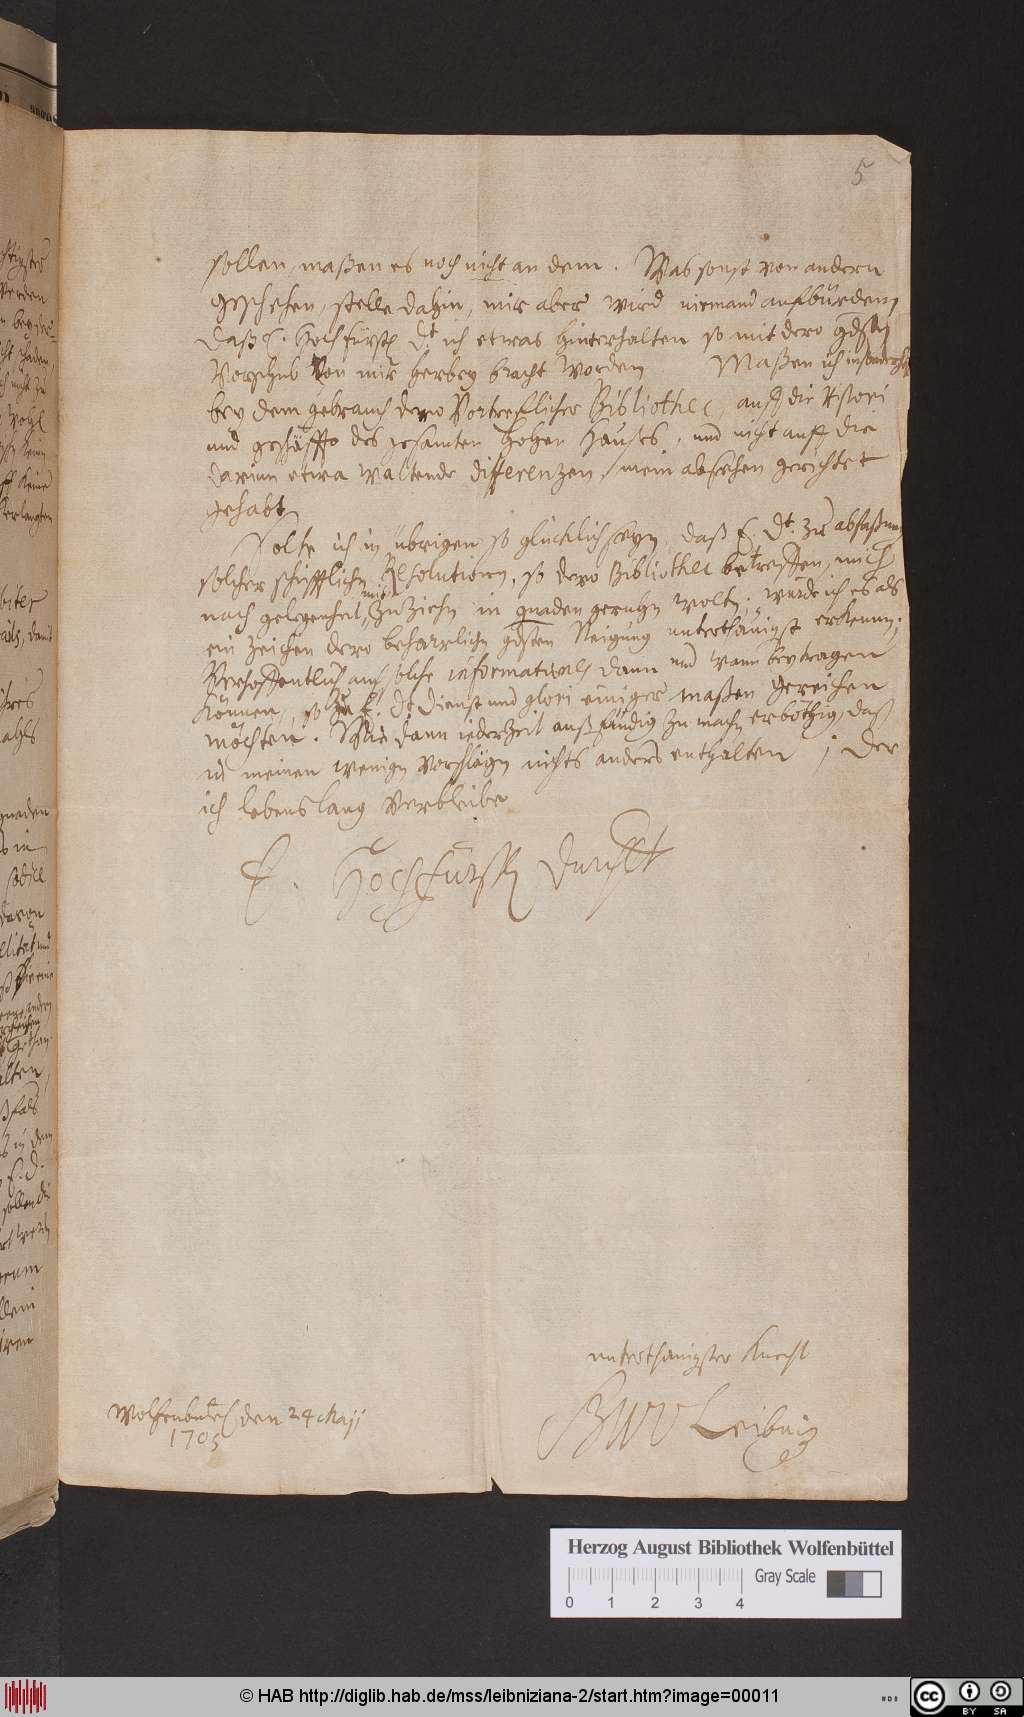 5
sollen, maßen es noch nicht an dem. Was sonst von andern
geschehen, stelle dahin, mir aber wird niemand aufbürden,
daß E. Hochfürstl Dt ich etwas hinterhalten so mit dero gdsten
Vorschub von mir herbey bracht worden Maßen ich
bey dem gebrauch dero Vortreflicher Bibliothec auff die Histori
und geschäffte des gesamten Hohen Hauses, und nicht auff die
darinn etwa waltende differenzen, mein absehen gerichtet
gehabt
Solte ich in übrigen so glücklich seyn, daß E. Dt. zu abfaßung
solcher schrifftlichen Resolutionen, so dero Bibliothec betreffen, mich
nach gelegenheit mit zuziehn in gnaden geruhen wolten; würde ich es als
ein zeichen dero beharrlichen gdsten Neigung unterthänigst erkennen;
Verhoffentlich auch solche informationes dann und wann beytragen
können, so zu E. Dt dienst und glori einiger maßen gereichen
möchten. Wie dann iederzeit außfündig zu machen erböthig, daß
in meinen wenigen vorschlägen nichts anders enthalten; Der
ich lebenslang verbleibe
E. Hochfürstl Durchlt
unterthänigster Knecht
Wolfenbutel den 24 Maji
1705
GWV Leibniz
Herzog August Bibliothek Wolfenbüttel
Gray Scale
0 1 2 3 4
© HAB http://diglib.hab.de/mss/leibniziana-2/start.htm?image=00011
HAB
cc BY SA